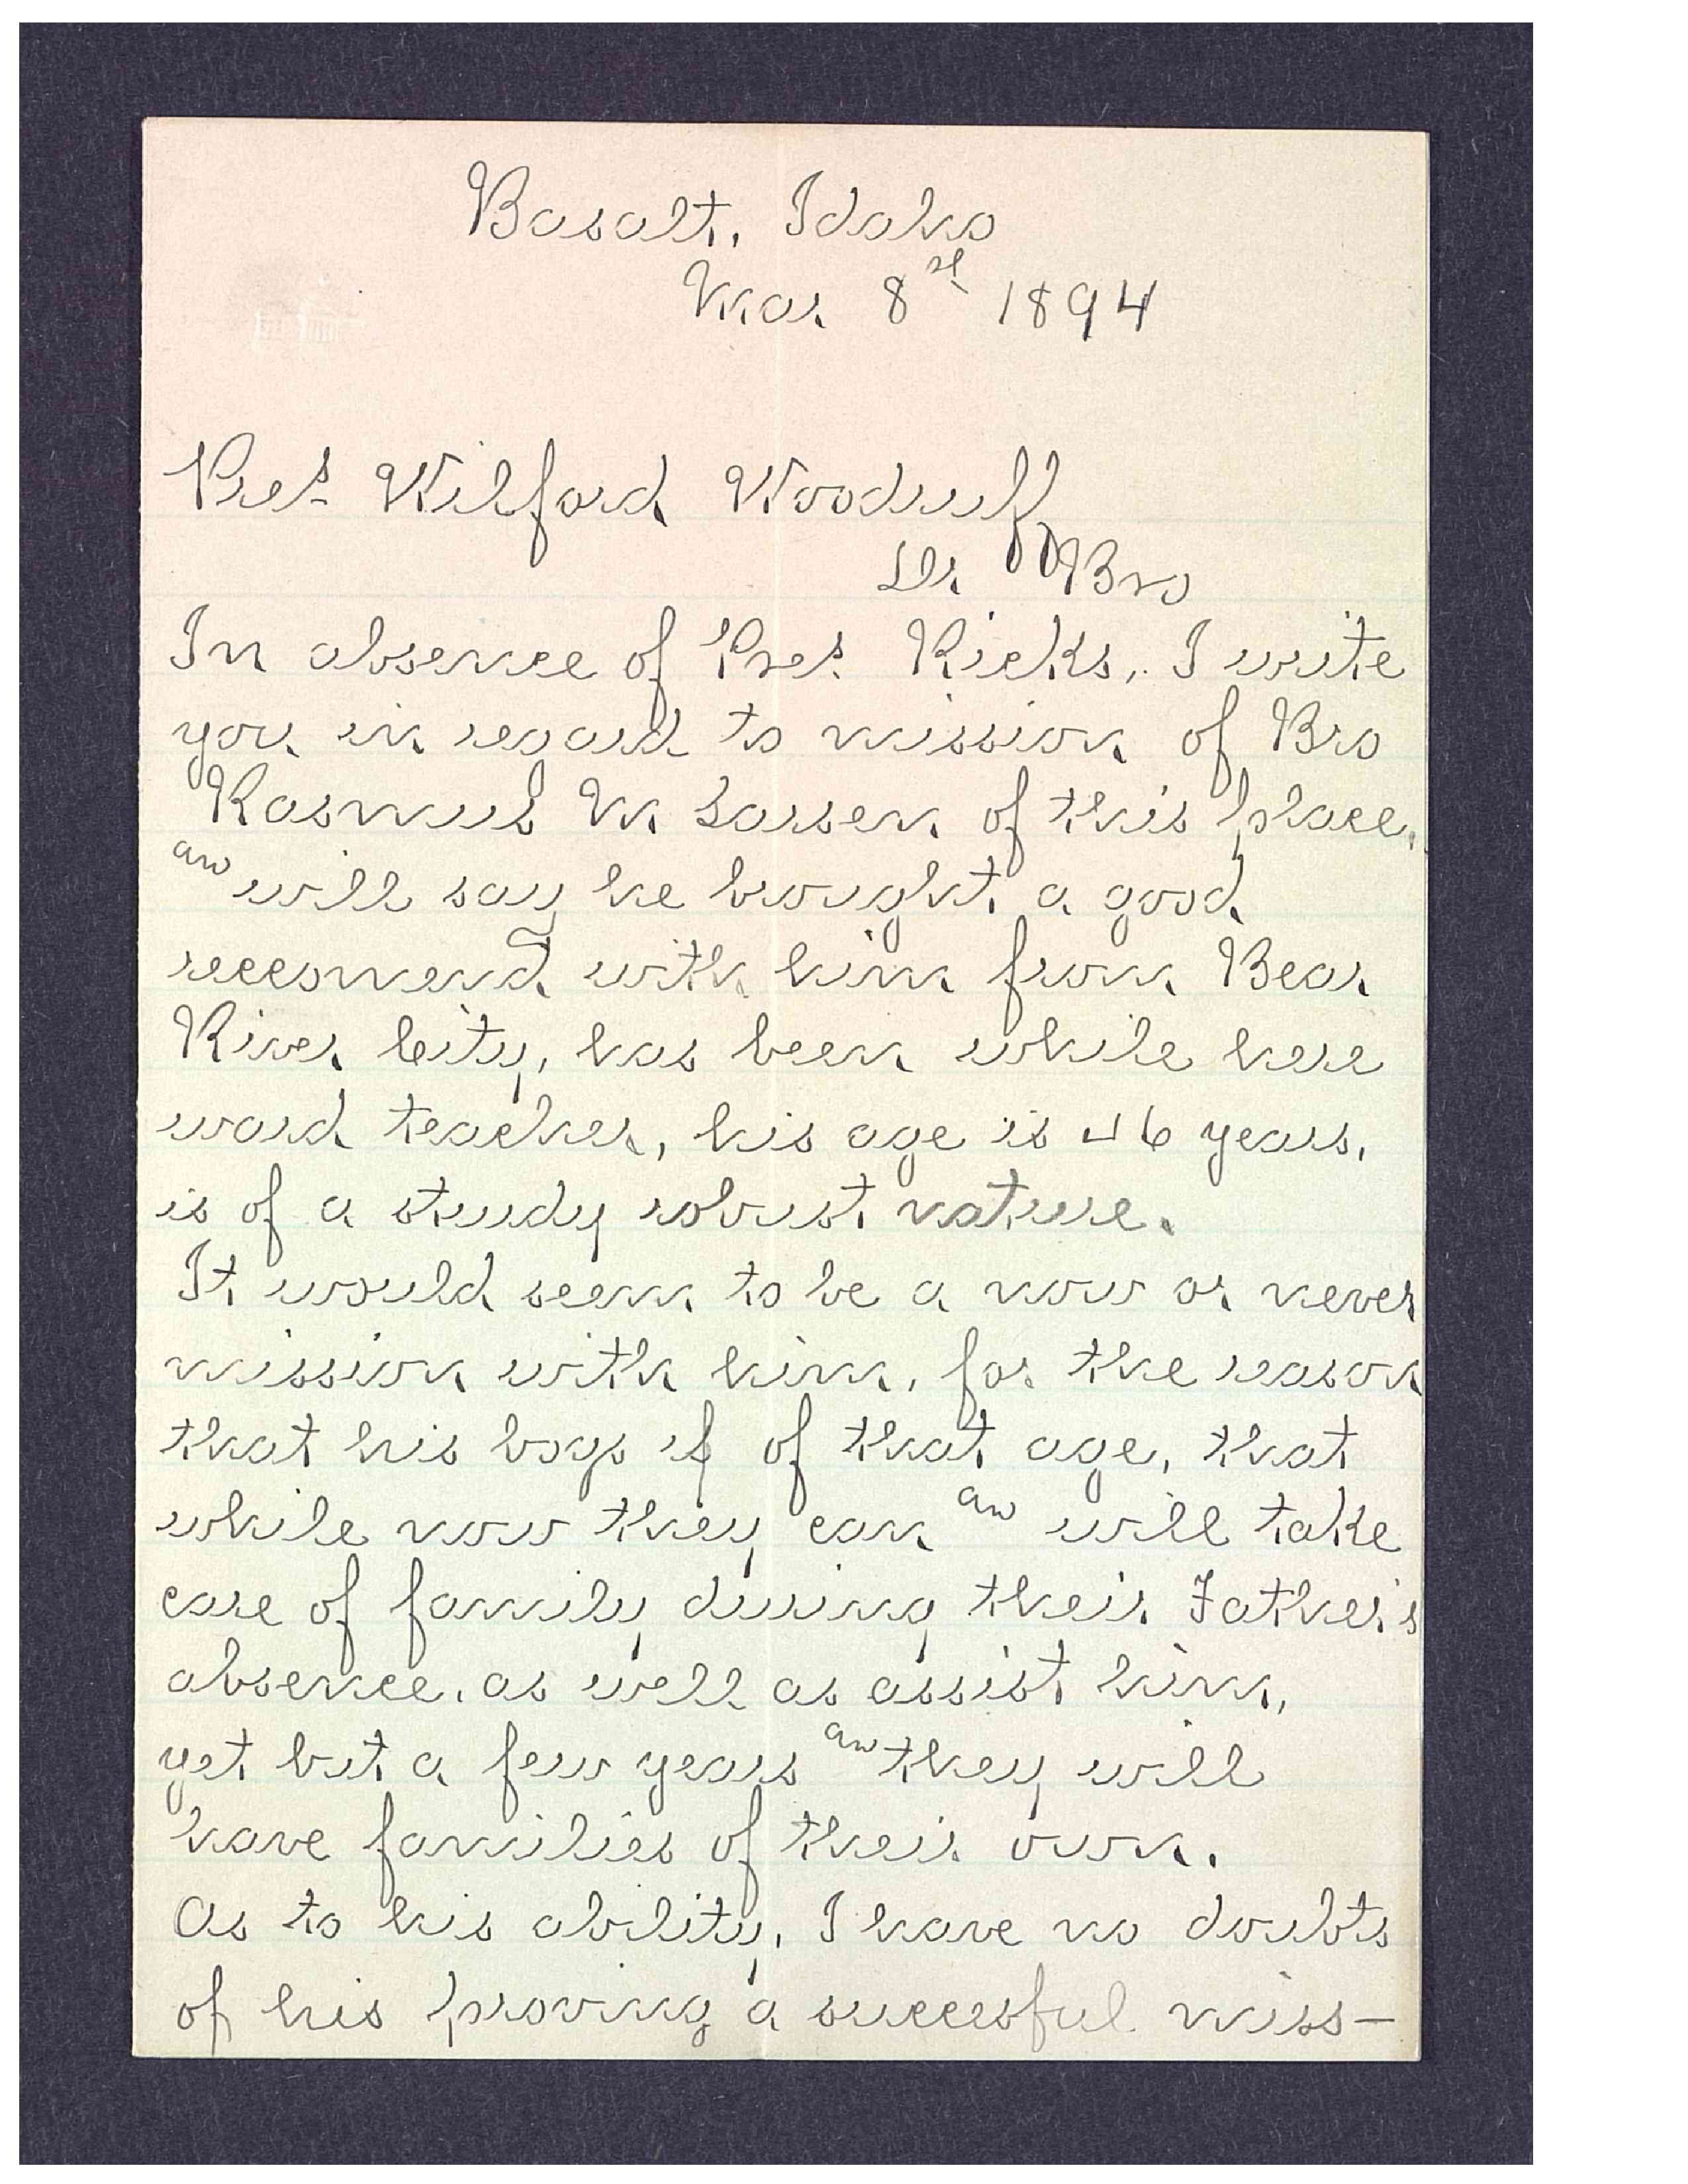 Basalt, Idaho
Mar. 8st 1894
Pres Wilford Woodruff,
Dr. Bro
In absence of Pres. Ricks, I write
you in regard to mission of Bro
Rasmus M Larsen of this place,
an will say he brought a good
reccomend with him from Bear
River City, has been while here
ward teacher, his age is 46 years,
is of a sturdy robust nature.
It would seem to be a now or never
mission with him, for the reason
that his boys if of that age, that
while now they can an will take
care of family during their Father's
absence, as well as assist him,
yet but a few years an they will
have families of their own.
As to his ability, I have no doubts
of his proving a succesful miss-